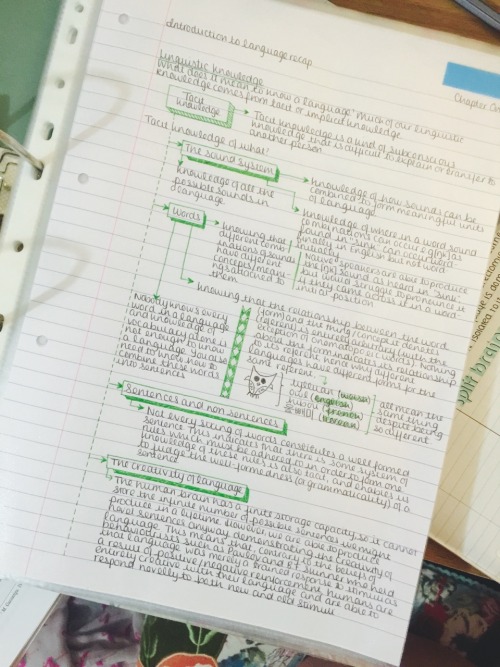 Introduction to language recap
Chapter On
Linguistic knowledge
What does it mean to know a language? Much of our linguistic
knowledge comes from tacit or implicit knowledge.
Tacit
knowledge
Tacit knowledge is a kind of subconscious
knowledge that is difficult to explain or transfer to
another person
Tacit knowledge of what?
The sound system
knowledge of all the
possible sounds in
a language.
knowledge of how sounds can be
combined to form meaningful units
of language
knowledge of where in a word sound
combinations can occur
finally in English but not word
initially.
Native speakers are able to produce
the sound as heard in "sink"
but would struggle to pronounce it
if they came across it in a word
initial position
Words
knowing that
different comb-
inations of sounds
have different
concepts/mean-
ings attached to
them
knowing that the relationship between the word
(form) and the thing/concept it denotes
(referent) is usually arbitrary (with the
exception of onomatopoeic words). Nothing
about the form indicates its relationship
to its referent and why different
languages have different forms for the
same referent
Nobody knows every
word in a language
and knowledge of
vocabulary alone is
not enough to know
a language. You also
need to know how to
combine these words
into sentences
(welsh)
owl (english)
hibou (french)
(korean)
all mean the
same thing
despite being
so different
Sentences and non-sentences
Not every string of words constitutes a well formed
sentence. This indicates that there is some system of
rules which must be adhered to in order to form one
knowledge of these rules is also tacit, and enables us
to judge the well-formedness (or grammaticality) of a
sentence
The creativity of language
The human brain has a finite storage capacity, so it cannot
store the infinite number of possible sentences we might
produce in a lifetime. However, we are able to produce
novel sentences anyway, demonstrating the creativity of
language. This means that, contrary to the beliefs of
behaviourists such as Pavlov and BF Skinner who held
that language was merely a trained response to stimuli as
a result of positive/negative reinforcement, humans are
entirely creative with their language and are able to
respond novelly to both new and old stimuli